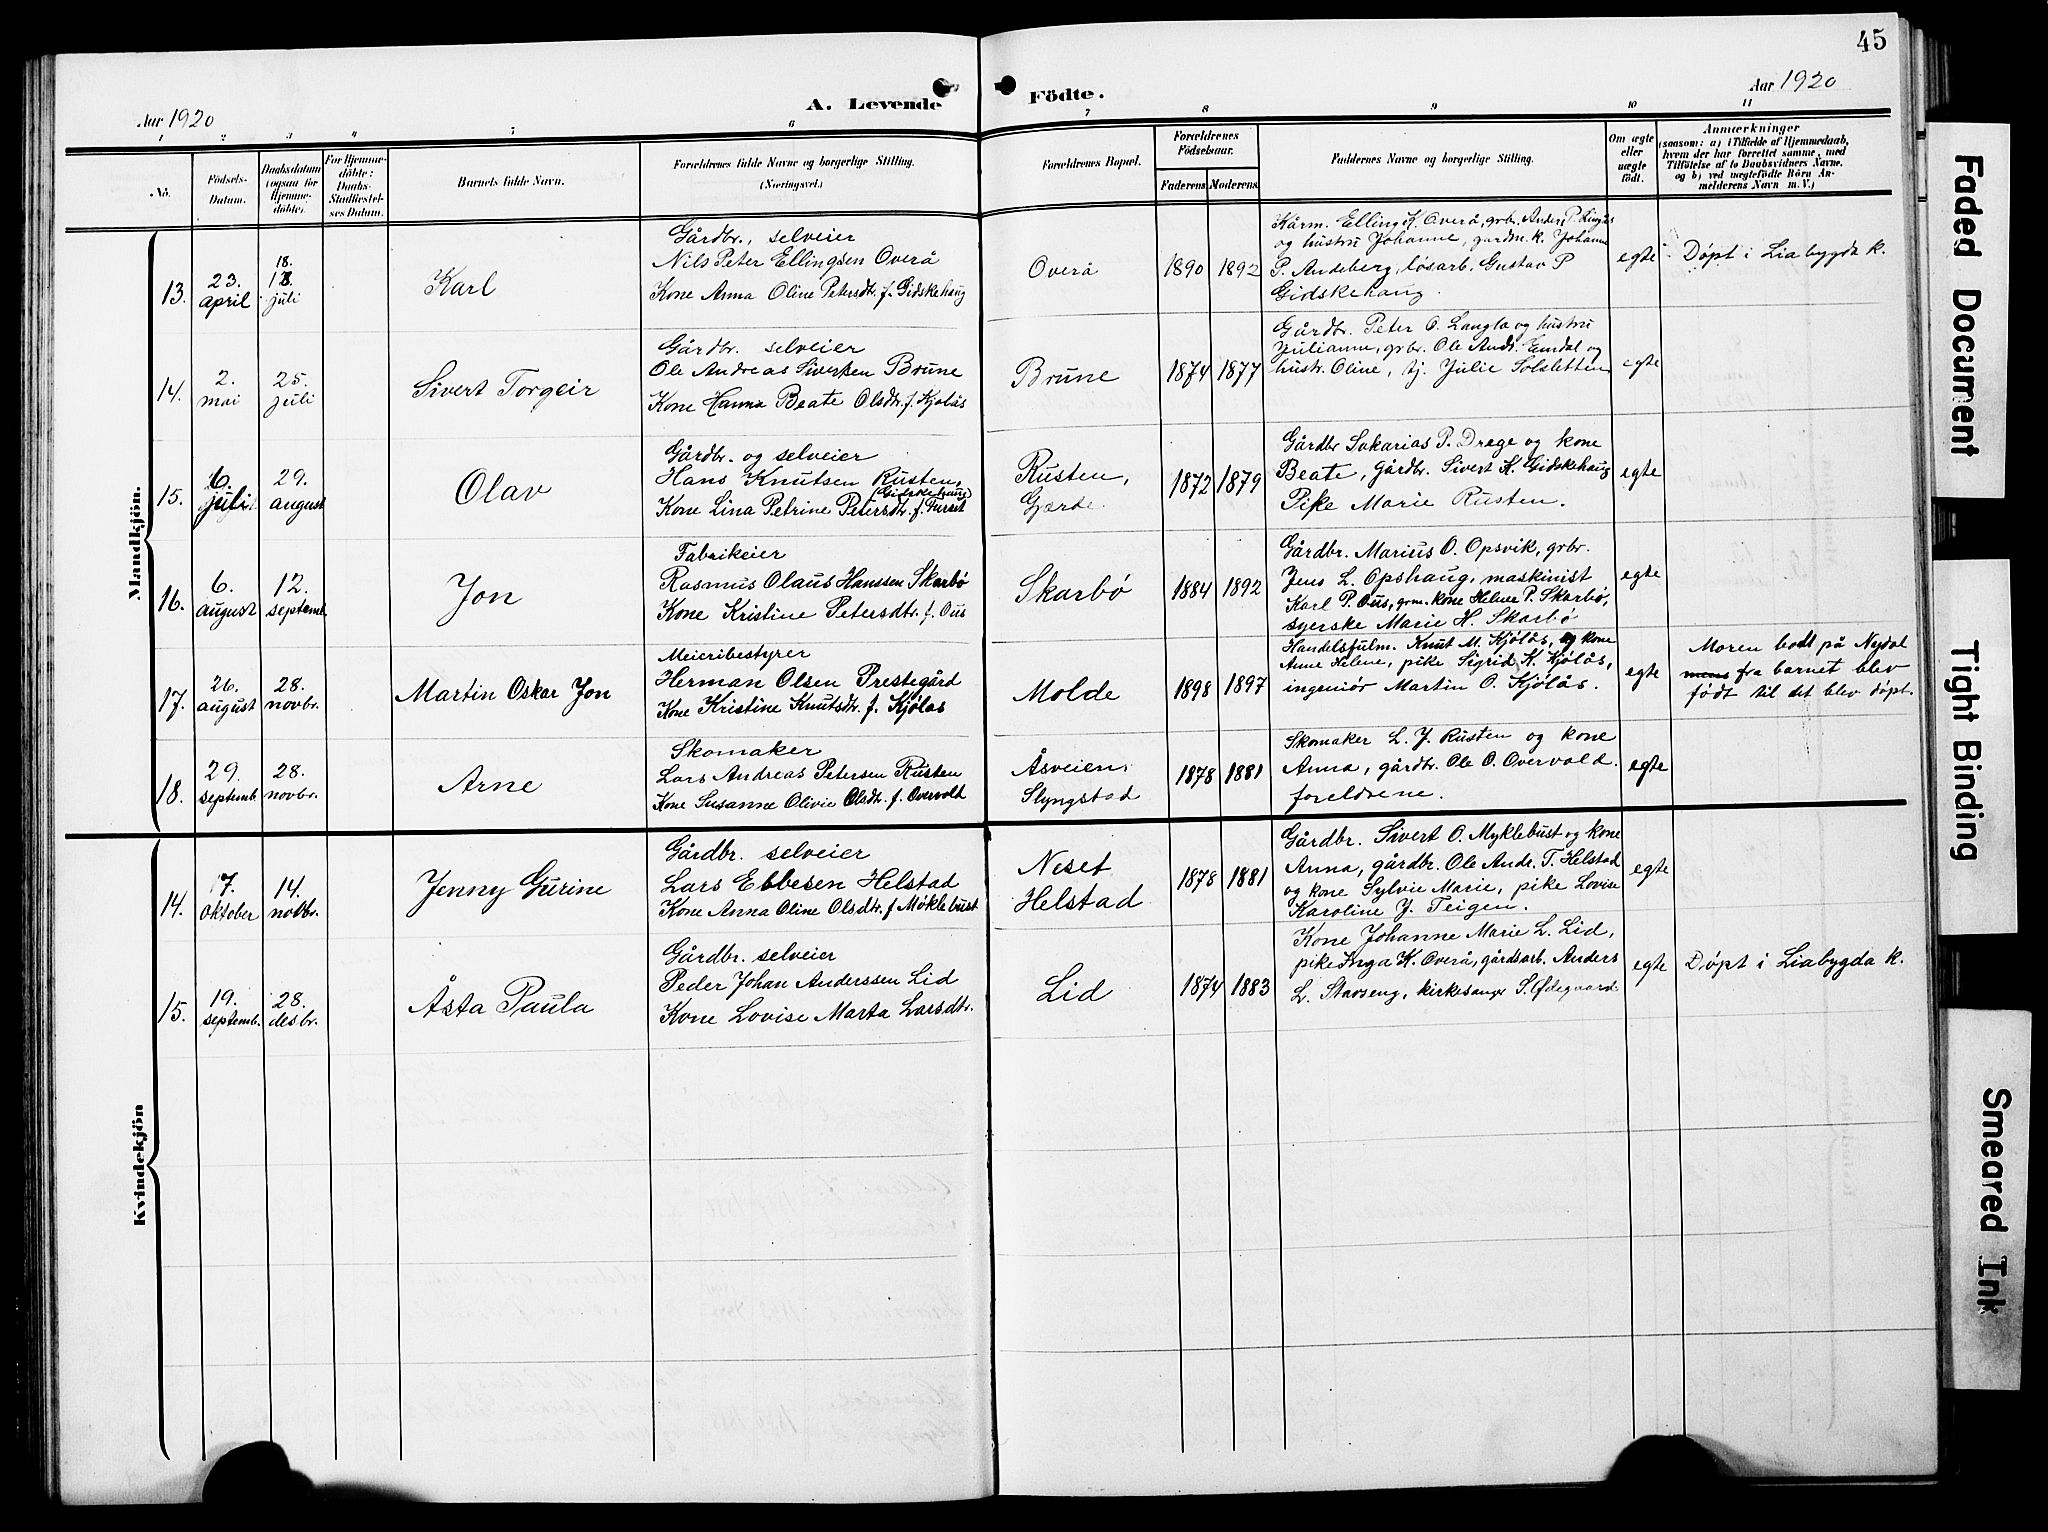 45
Aar 1920
A. Levende Födte.
Aar 1920
1 2 3 4 5 6 7 8 9 10 11
No.
Födsels-
Datum.
Daabsdatum
(ogsaa for
Hjemme-
döbte).
For Hjemme-
döbte:
Daabs-
Stadfæstel-
ses Datum.
Barnets fulde Navn.
Forældrenes fulde Navne og borgerlige Stilling.
(Næringsvei.)
Forældrenes Bopæl.
Forældrenes
Födselsaar.
Faderens Moderens
Faddernes Navne og borgerlige Stilling.
Om ægte
eller
uægte
født.
Anmærkninger
(saasom: a) i Tilfælde af Hjemmedaab,
hvem der har forrettet samme, med
Tilföielse af to Daabsvidners Navne,
og b) ved uægtefödte Börn An-
melderens Navn m. V.)
Mandkjön.
13.
23.
april
18.
juli
Karl
Gårdbr., selveier
Nils Peter Ellingsen Overå
Kone Anna Oline Petersdtr. f. Gidskehaug
Overå
1890 1892
Kårm. Elling K. Overå, grbr. Anders P. Linges
og hustru Johanne, gardm. k. Johanne
P. Andeberg, løsarb. Gustav P
Gidskehaug.
egte
Døpt i Liabygda k.
14.
2.
mai
25.
juli
Sivert Torgeir
Gårdbr. selveier
Ole Andreas Sivertsen Brune
Kone Hanna Beate Olsdtr. f. Kjølås
Brune
1874 1877
Gårdbr. Peter O. Langlo og hustru
Julianne, grbr. Ole Andr. Emdal og
hustr. Oline, tj. Julie Solsletten
egte
15.
6.
juli
29.
august
Olav
Gårdbr. og selveier
Hans Knutsen Rusten,
(Gidskehaug)
Kone Lina Petrine Petersdtr. f. Furset
Rusten,
Gjærde.
1872 1879
Gårdbr Sakarias P. Drege og kone
Beate, gårdbr. Sivert K. Gidskehaug
Pike Marie Rusten.
egte
16.
6.
august
12.
septemb.
Jon
Fabrikeier
Rasmus Olaus Hanssen Skarbø
Kone Kristine Petersdtr. f. Ous
Skarbø
1884 1892
Gårdbr. Marius O. Opsvik, grbr.
Jens L. Opshaug, maskinist
Karl P. Ous, grm. kone Helene P. Skarbø,
syerske Marie H. Skarbø
egte
17.
26.
august
28.
novbr.
Martin Oskar Jon
Meieribestyrer
Herman Olsen Prestegård
Kone Kristine Knutsdtr. f. Kjølås
Molde
1898 1897
Handelsfulm. Knut M. Kjølås, og kone
Anne Helene, pike Sigrid K. Kjølås,
ingeniør Martin O. Kjølås.
egte
Moren bodt på Nydal
mens fra barnet blev
født til det blev døpt.
18.
29.
septemb.
28.
novbr.
Arne
Skomaker
Lars Andreas Petersen Rusten
Kone Susanne Olivie Olsdtr. f. Overvold
Åsveien,
Slyngstad
1878 1881
Skomaker L. J. Rusten og kone
Anna, gårdbr. Ole O. Overvold.
foreldrene.
egte
Kvindekjön
14.
17.
oktober
14.
novbr.
Jenny Gurine
Gårdbr. selveier
Lars Ebbesen Helstad
Kone Anna Oline Olsdtr. f Møklebust
Neset
Helstad
1878 1881
Gårdbr. Sivert O. Myklebust og kone
Anna, gårdbr. Ole Andr. T. Helstad
og kone Sylvie Marie, pike Lovise
Karoline J. Teigen.
egte
15.
19.
septemb.
28.
desbr.
Åsta Paula
Gårdbr. selveier
Peder Johan Anderssen Lid
Kone Lovise Marta Larsdtr.
Lid
1874 1883
Kone Johanne Marie L. Lid,
pike Inga K. Overå, gårdsarb. Anders
L. Stavseng, kirkesanger S. Ødegaard
egte
Døpt i Liabygda k.
Faded Document
Tight Binding
Smeared Ink